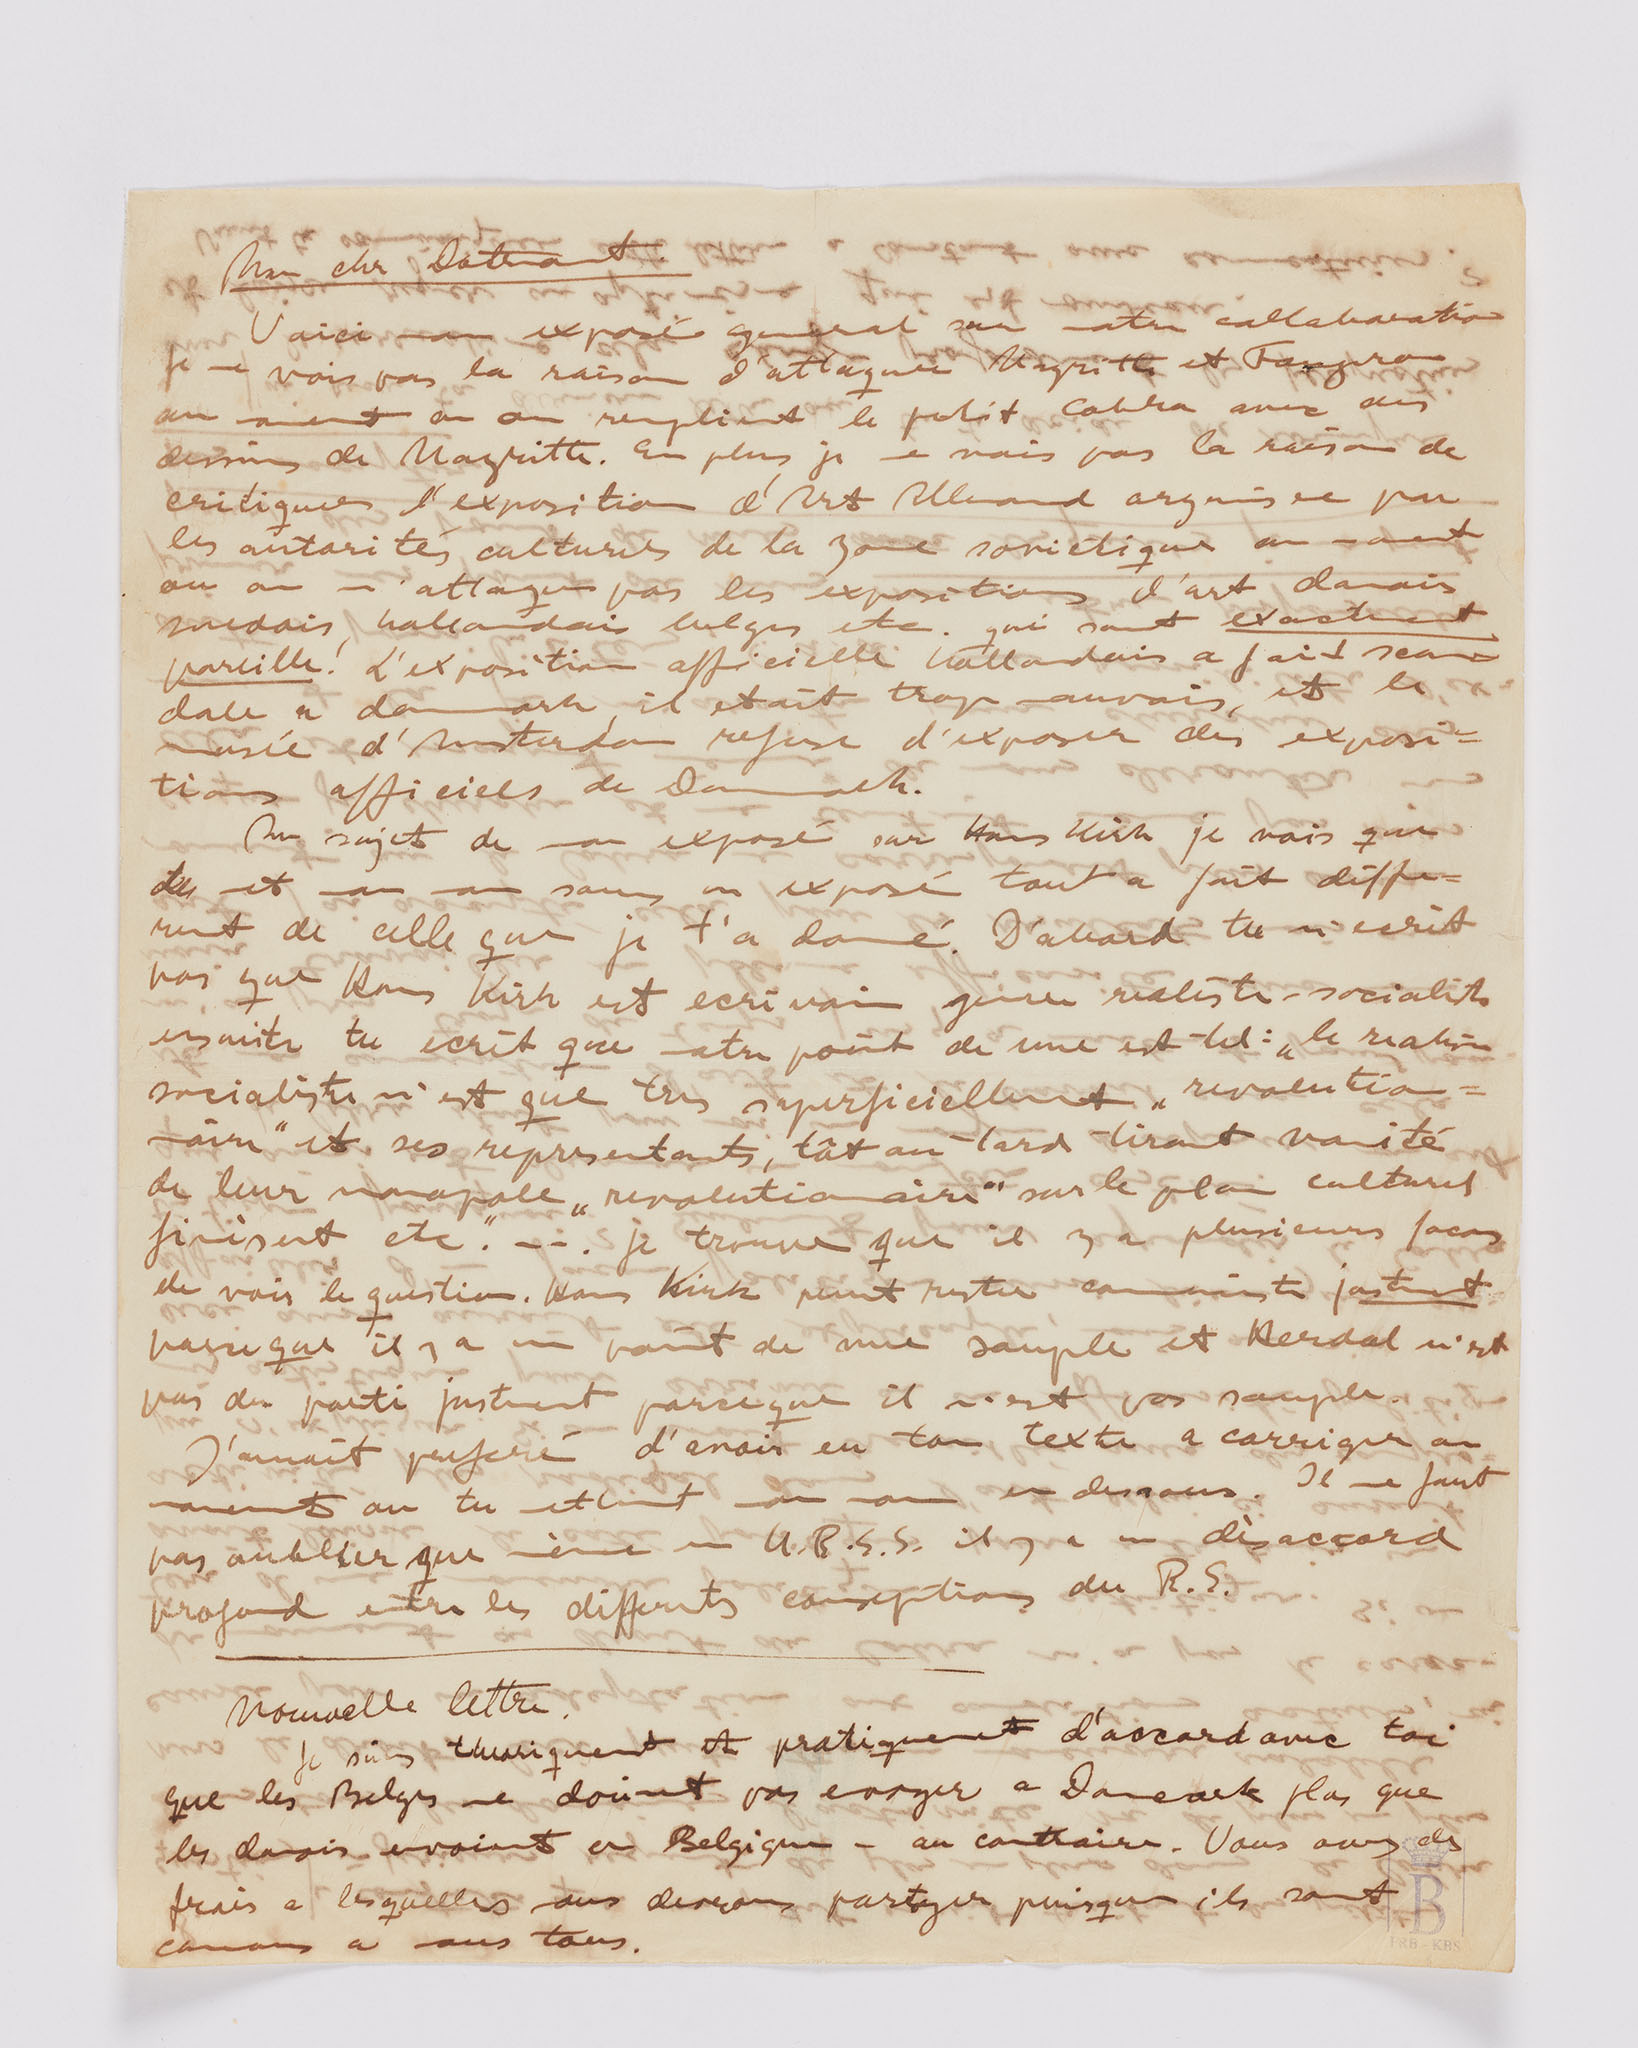 Mon cher Dotremont.
Voici mon exposé general sur notre collaboration
je ne vois pas la raison d'attaquer Magritte et
au moment ou on remplient le petit Cobra avec des
dessins de Magritte. En plus je ne vois pas la raison de
critiquer l'exposition d'Art Allemand organisee par
les autorités culturels de la zone soviétique au moment
ou on n'attaque pas les expositions d'art danois
suedois, hollandais belges etc. qui sont exactment
pareille! L'exposition officielle hollandais a fait scan-
dale a danmark, il etait trop mauvais, et le
musée d'Amsterdam refuse d'exposer des exposi=
tions officiels de Danmark.
Au sujet de mon exposé sur Hans Kirk je vois que
met mon nom sous un exposé tout a fait diffe=
rent de celle que je t'a donné. D'abord tu n'ecrit
pas que Hans Kirk est ecrivain genre realiste-socialiste
ensuite tu ecrit que notre point de vue est tel: „le realisme
socialiste n'est que tres superficiellement „revolution=
naire" et ses representants, tôt ou tard tirant vanité
de leur monopole „revolutionaire" sur le plan culturel
finisent etc." —. je trouve que il y a plusieurs facons
de voir le question. Hans Kirk peut rester communiste justment
parceque il y a un point de vue souple et Herdal n'est
pas du parti justment parceque il n'est pas souple.
J'aurait preferé d'avoir eu ton texte a corriger au
moment ou tu mon nom en dessous. Il ne faut
pas oublier que même en U.R.S.S. il y a un désaccord
profond entre les differents conseptions du R.S.
Nouvelle lettre.
Je suis theoriquement et pratiquement d'accord avec toi
que les Belges ne doivent pas envoyer a Danemark plus que
les danois envoient en Belgique – au contraire. Vous avez des
frais a lesquelles nous devrons partager puisque ils sont
comuns a nous tous.
B
FRB - KBS